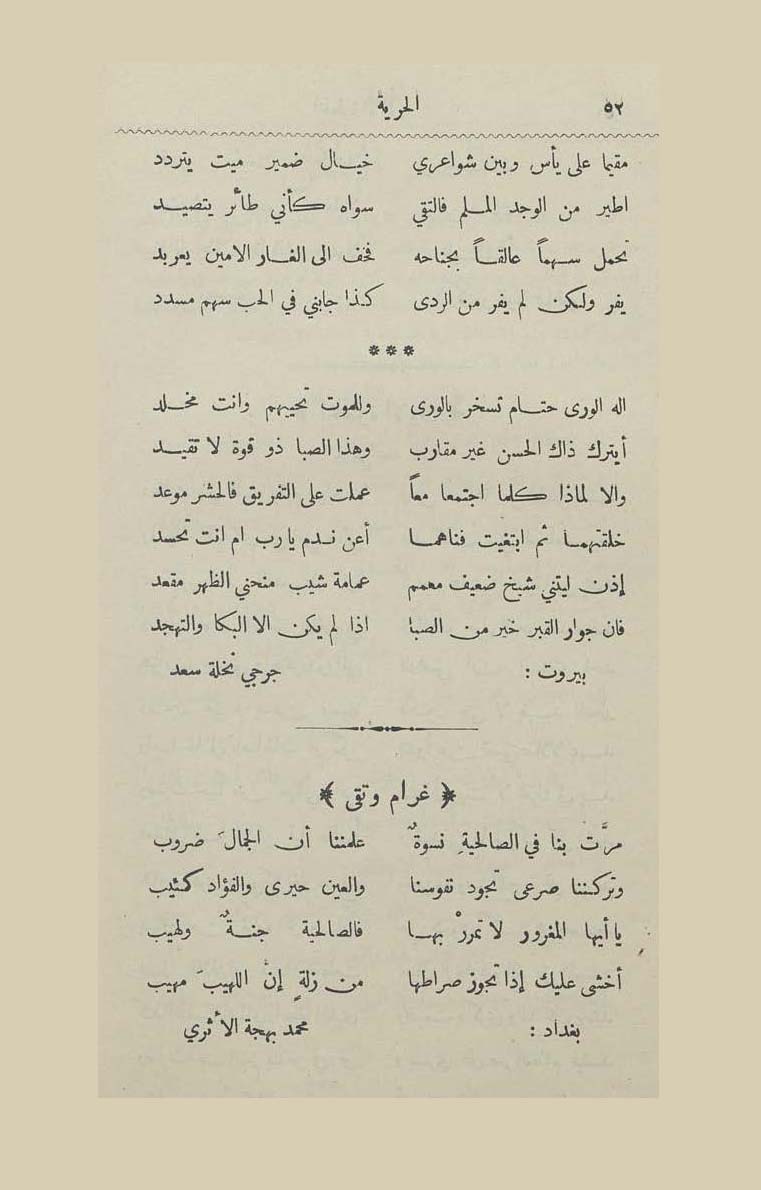 ٥٢ الحرية
مقيما على يأس وبين شواعري خيـال ضمير ميت يتردد
اطير من الوجد الملم فالتقي سواه كأني طائر يتصيد
تحمل سهماً عالقاً بجناحه فخف الى الغار الامين يعربد
يفر ولكن لم يفر من الردى كذا جابني في الحب سهم مسدد
***
اله الورى حتام تسخر بالورى وللموت تحييهم وانت مخلد
أيترك ذاك الحسن غير مقارب وهذا الصبا ذو قوة لا تقيد
والا لماذا كلما اجتمعا معاً عملت على التفريق فالحشر موعد
خلقتهما ثم ابتغيت فناهما أعن ندم يا رب ام انت تحسد
إذن ليتني شيخ ضعيف معمم عمامة شيب منحني الظهر مقعد
فان جوار القبر خير من الصبا اذا لم يكن الا البكا والتهجد
بيروت : جرجي نخلة سعد
﴿ غرام وتقى ﴾
مرَّت بنا في الصالحيةِ نسوةٌ علمننا أن الجمالَ ضروب
وتركننا صرعى تجود نفوسنا والعين حيرى والفؤاد كئيب
يا أيها المغرور لا تمررْ بها فالصالحية جنةٌ ولهيب
أخشى عليك إذا تجوز صراطها من زلةٍ إنَّ اللهيبَ مهيب
بغداد : محمد بهجة الأثري